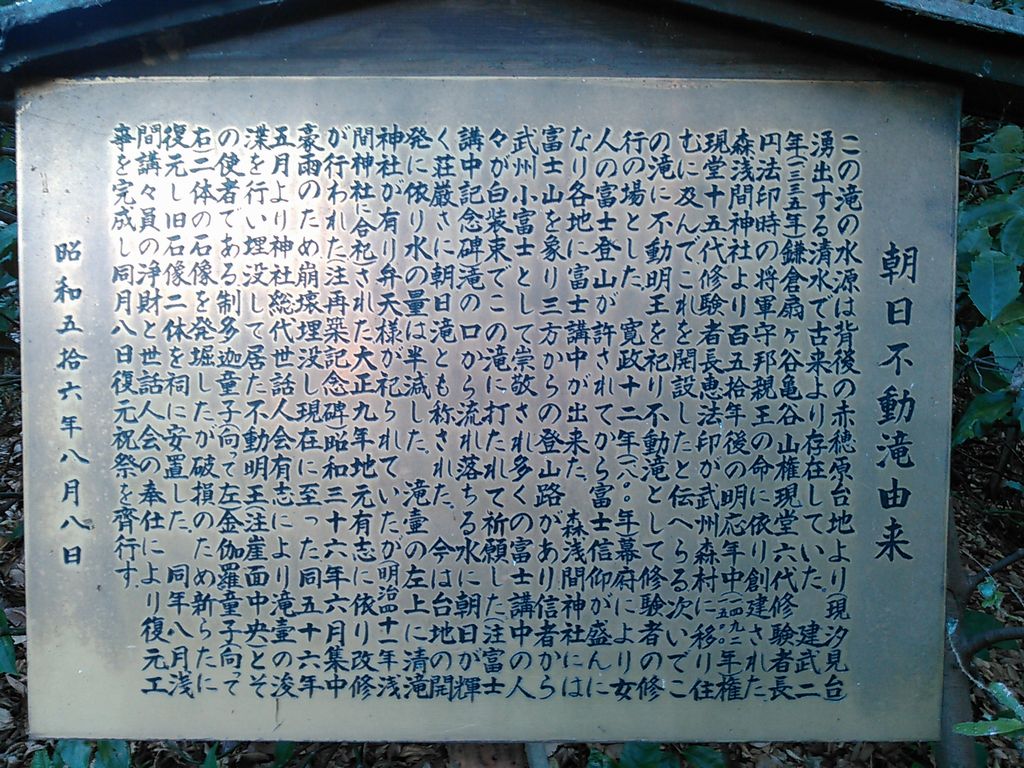 朝日不動滝由来
この滝の水源は背後の赤穂原台地より(現汐見台)
湧出する清水で古来より存在していた。 建武二
年(一三三五年)鎌倉扇ヶ谷亀谷山権現堂六代修験者長
円法印時の将軍守邦親王の命に依り創建された
森浅間神社より百五拾年後の明応年中(一四九二〇年)権
現堂十五代修験者長恵法印が武州森村に移り住
むに及んでこれを開設したと伝へらる次いでこ
の滝に不動明王を祀り不動滝として修験者の修
行の場とした。 寛政十二年(一八〇〇年)幕府により女
人の富士登山が許されてから富士信仰が盛んに
なり各地に富士講中が出来た。 森浅間神社には
富士山を象り三方からの登山路があり信者から
武州小富士として崇敬され多くの富士講中の人
々が白装束でこの滝に打たれて祈願した(注富士
講中記念碑滝の口から流れ落ちる水に朝日が輝
く荘厳さに朝日滝とも称された。 今は台地の開
発に依り水の量は半減した。 滝壷の左上に清滝
神社が有り弁天様が祀られていたが明治四十一年浅
間神社に合祀された大正九年地元有志に依り改修
が行われた注再築記念碑昭和三十六年六月集中
豪雨のため崩壊埋没し現在に至った同五十六年
五月より神社総代世話人会有志により滝壷の浚
渫を行い埋没して居た不動明王(注崖面中央)とそ
の使者である制多迦童子(向って左)金伽羅童子(向って
右)二体の石像を発堀したが破損のため新らたに
復元し旧石像二体を祠に安置した。 同年八月浅
間講々員の浄財と世話人会の奉仕により復元工
事を完成し同月八日復元祝祭を齊行す。
昭和五拾六年八月八日